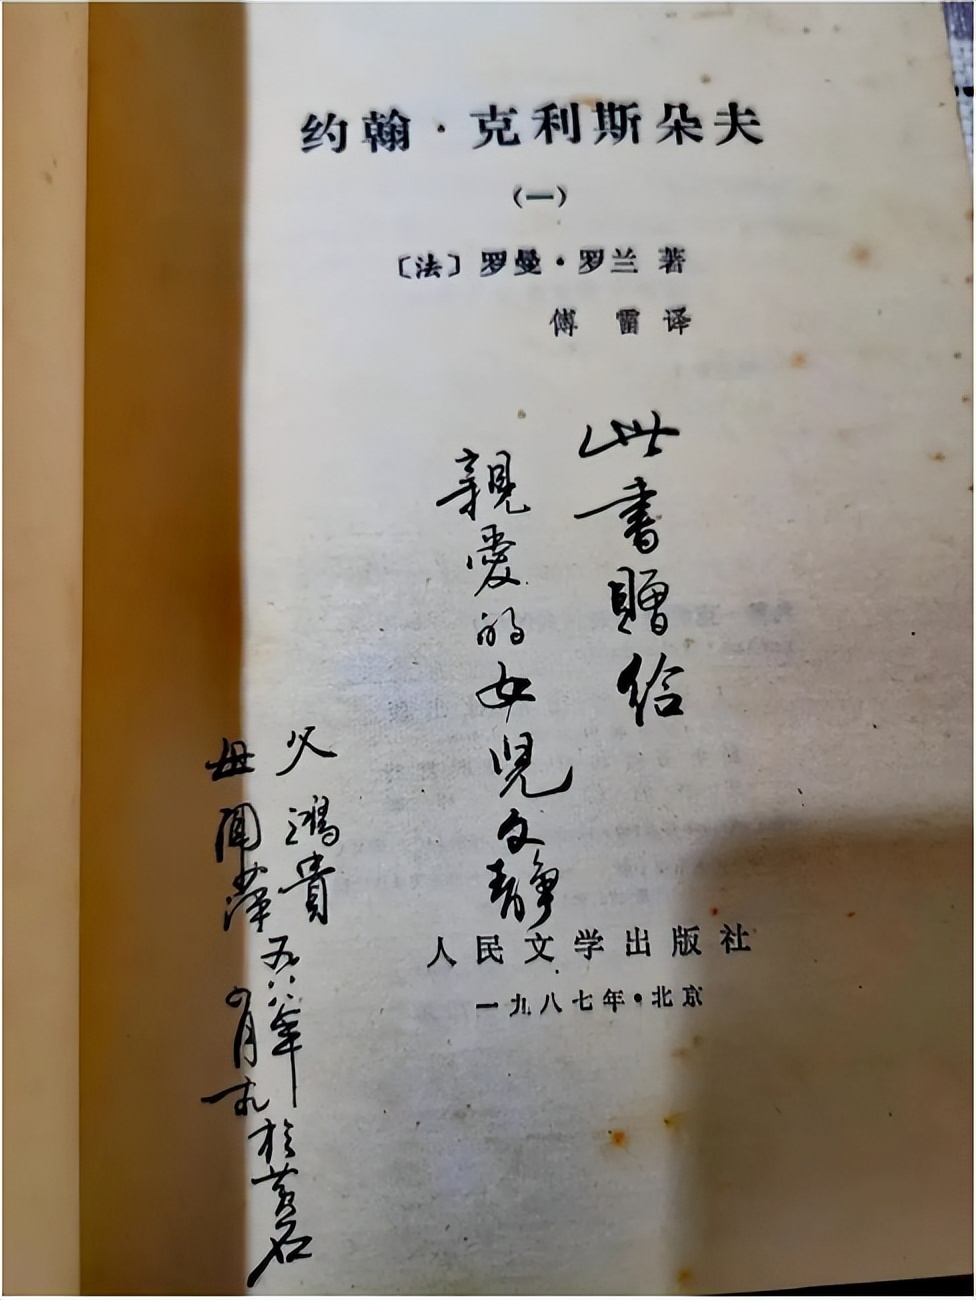 约翰·克利斯朵夫
(一)
〔法〕罗曼·罗兰 著
傅 雷 译
此書贈给
親愛的女児文静
父 鴻貴
母
一九八八年
四月十九
於黄石
人民文学出版社
一九八七年·北京